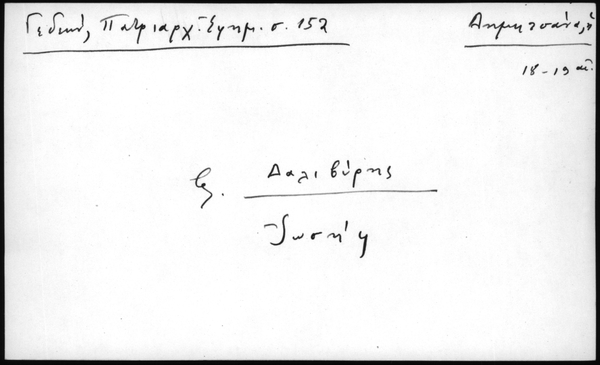 Γεδεών, Πατριαρχ. Εφημ. σ. 152
Δημητσάνα,
18-19 αἰ.
Δαλιβύρης
Ἰωσήφ